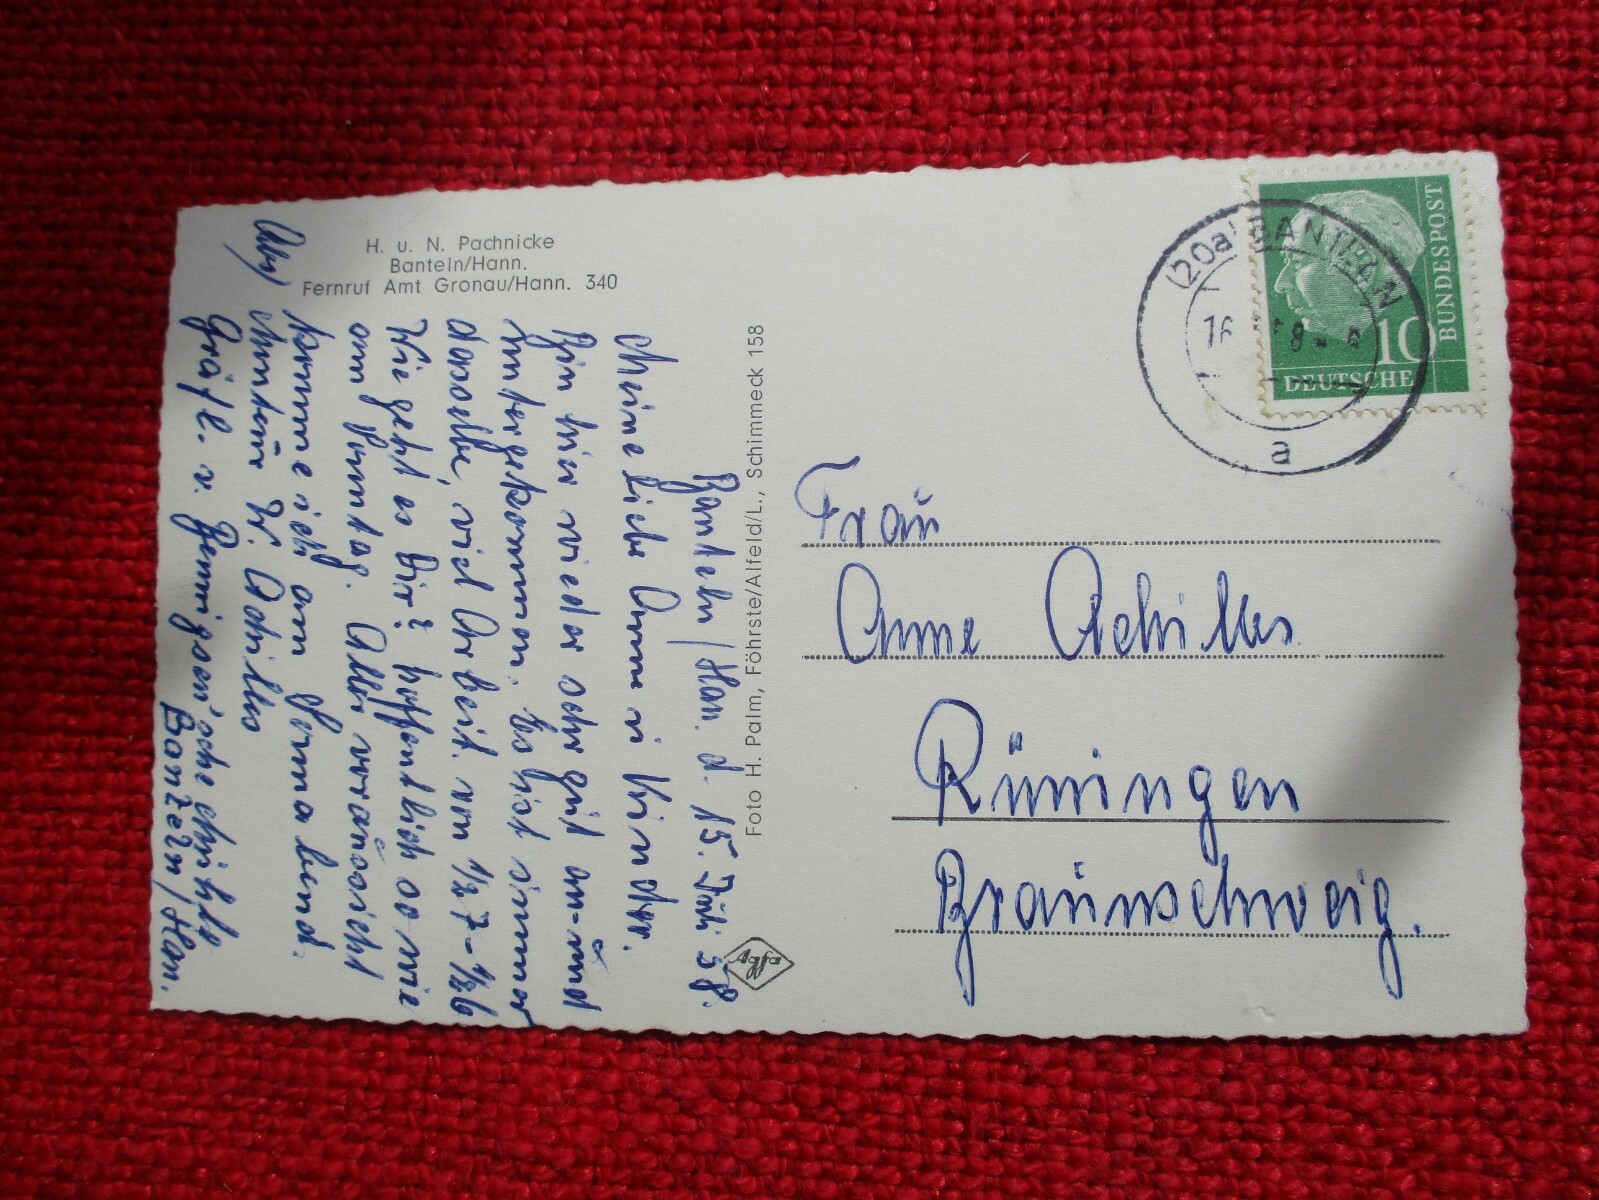 H. u. N. Pachnicke
Banteln/Hann.
Fernruf Amt Gronau/Hann. 340
Banteln/Han. d. 15. Juli 58.
Meine liebe Anne u Kinder.
Bin hier wieder sehr gut an- und
untergekommen. Es ist immer
dasselbe, viel Arbeit. von 1/2 7 - 1/2 6
Wie geht es Dir? hoffentlich so wie
am Sonntag. Also voraussicht
komme ich am Sonnabend.
Abs/ W. Achilles
Gräfl. v. Bennigsen'sche Mühle
Banteln/Han.
Foto H. Palm, Föhrste/Alfeld/L., Schimmeck 158
Agfa
(20a) BANTELN
16
58
a
10
DEUTSCHE
BUNDESPOST
Frau
Anne Achilles
Rüningen
Braunschweig.